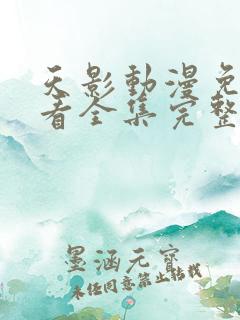 天影動漫免
看全集完整
墨涵元寶
未经同意禁止转载